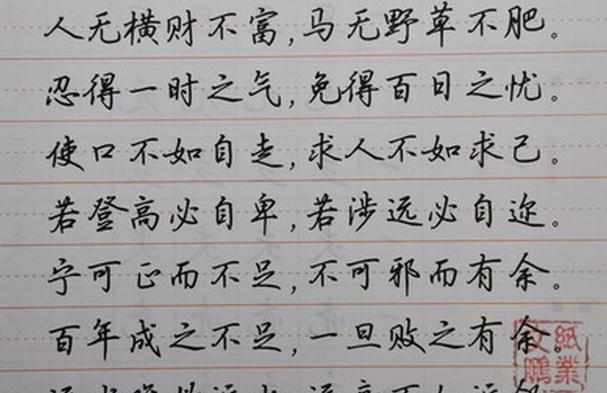 人无横财不富,马无野草不肥。
忍得一时之气,免得百日之忧。
使口不如自走,求人不如求己。
若登高必自卑,若涉远必自迩。
宁可正而不足,不可邪而有余。
百年成之不足,一旦败之有余。
纸业